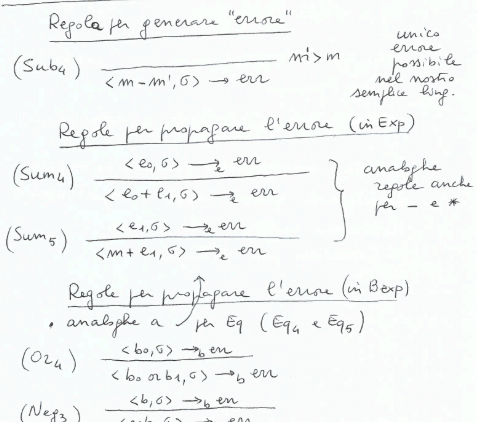 Regola per generare "errore"
(Sub4) ——— m'>m
<m-m', σ> → err
unico
errore
possibile
nel nostro
semplice ling.
Regole per propagare l'errore (in Exp)
(Sum4) <e0, σ> →e err
<e0+e1, σ> →e err
(Sum5) <e1, σ> →e err
<m+e1, σ> →e err
analoghe
regole anche
per - e *
Regole per propagare l'errore (in Bexp)
• analoghe a ↗ per Eq (Eq4 e Eq5)
(Or4) <b0, σ> →b err
<b0 or b1, σ> →b err
(Neg3) <b, σ> →b err